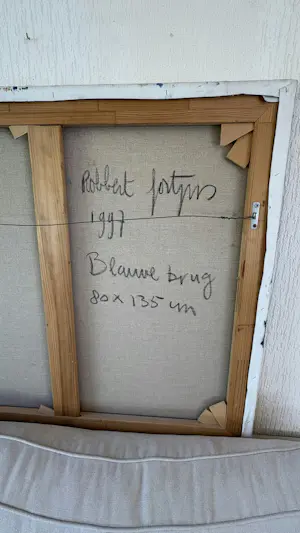 Robbert fortgens
1997
Blauwe brug
80 x 135 cm